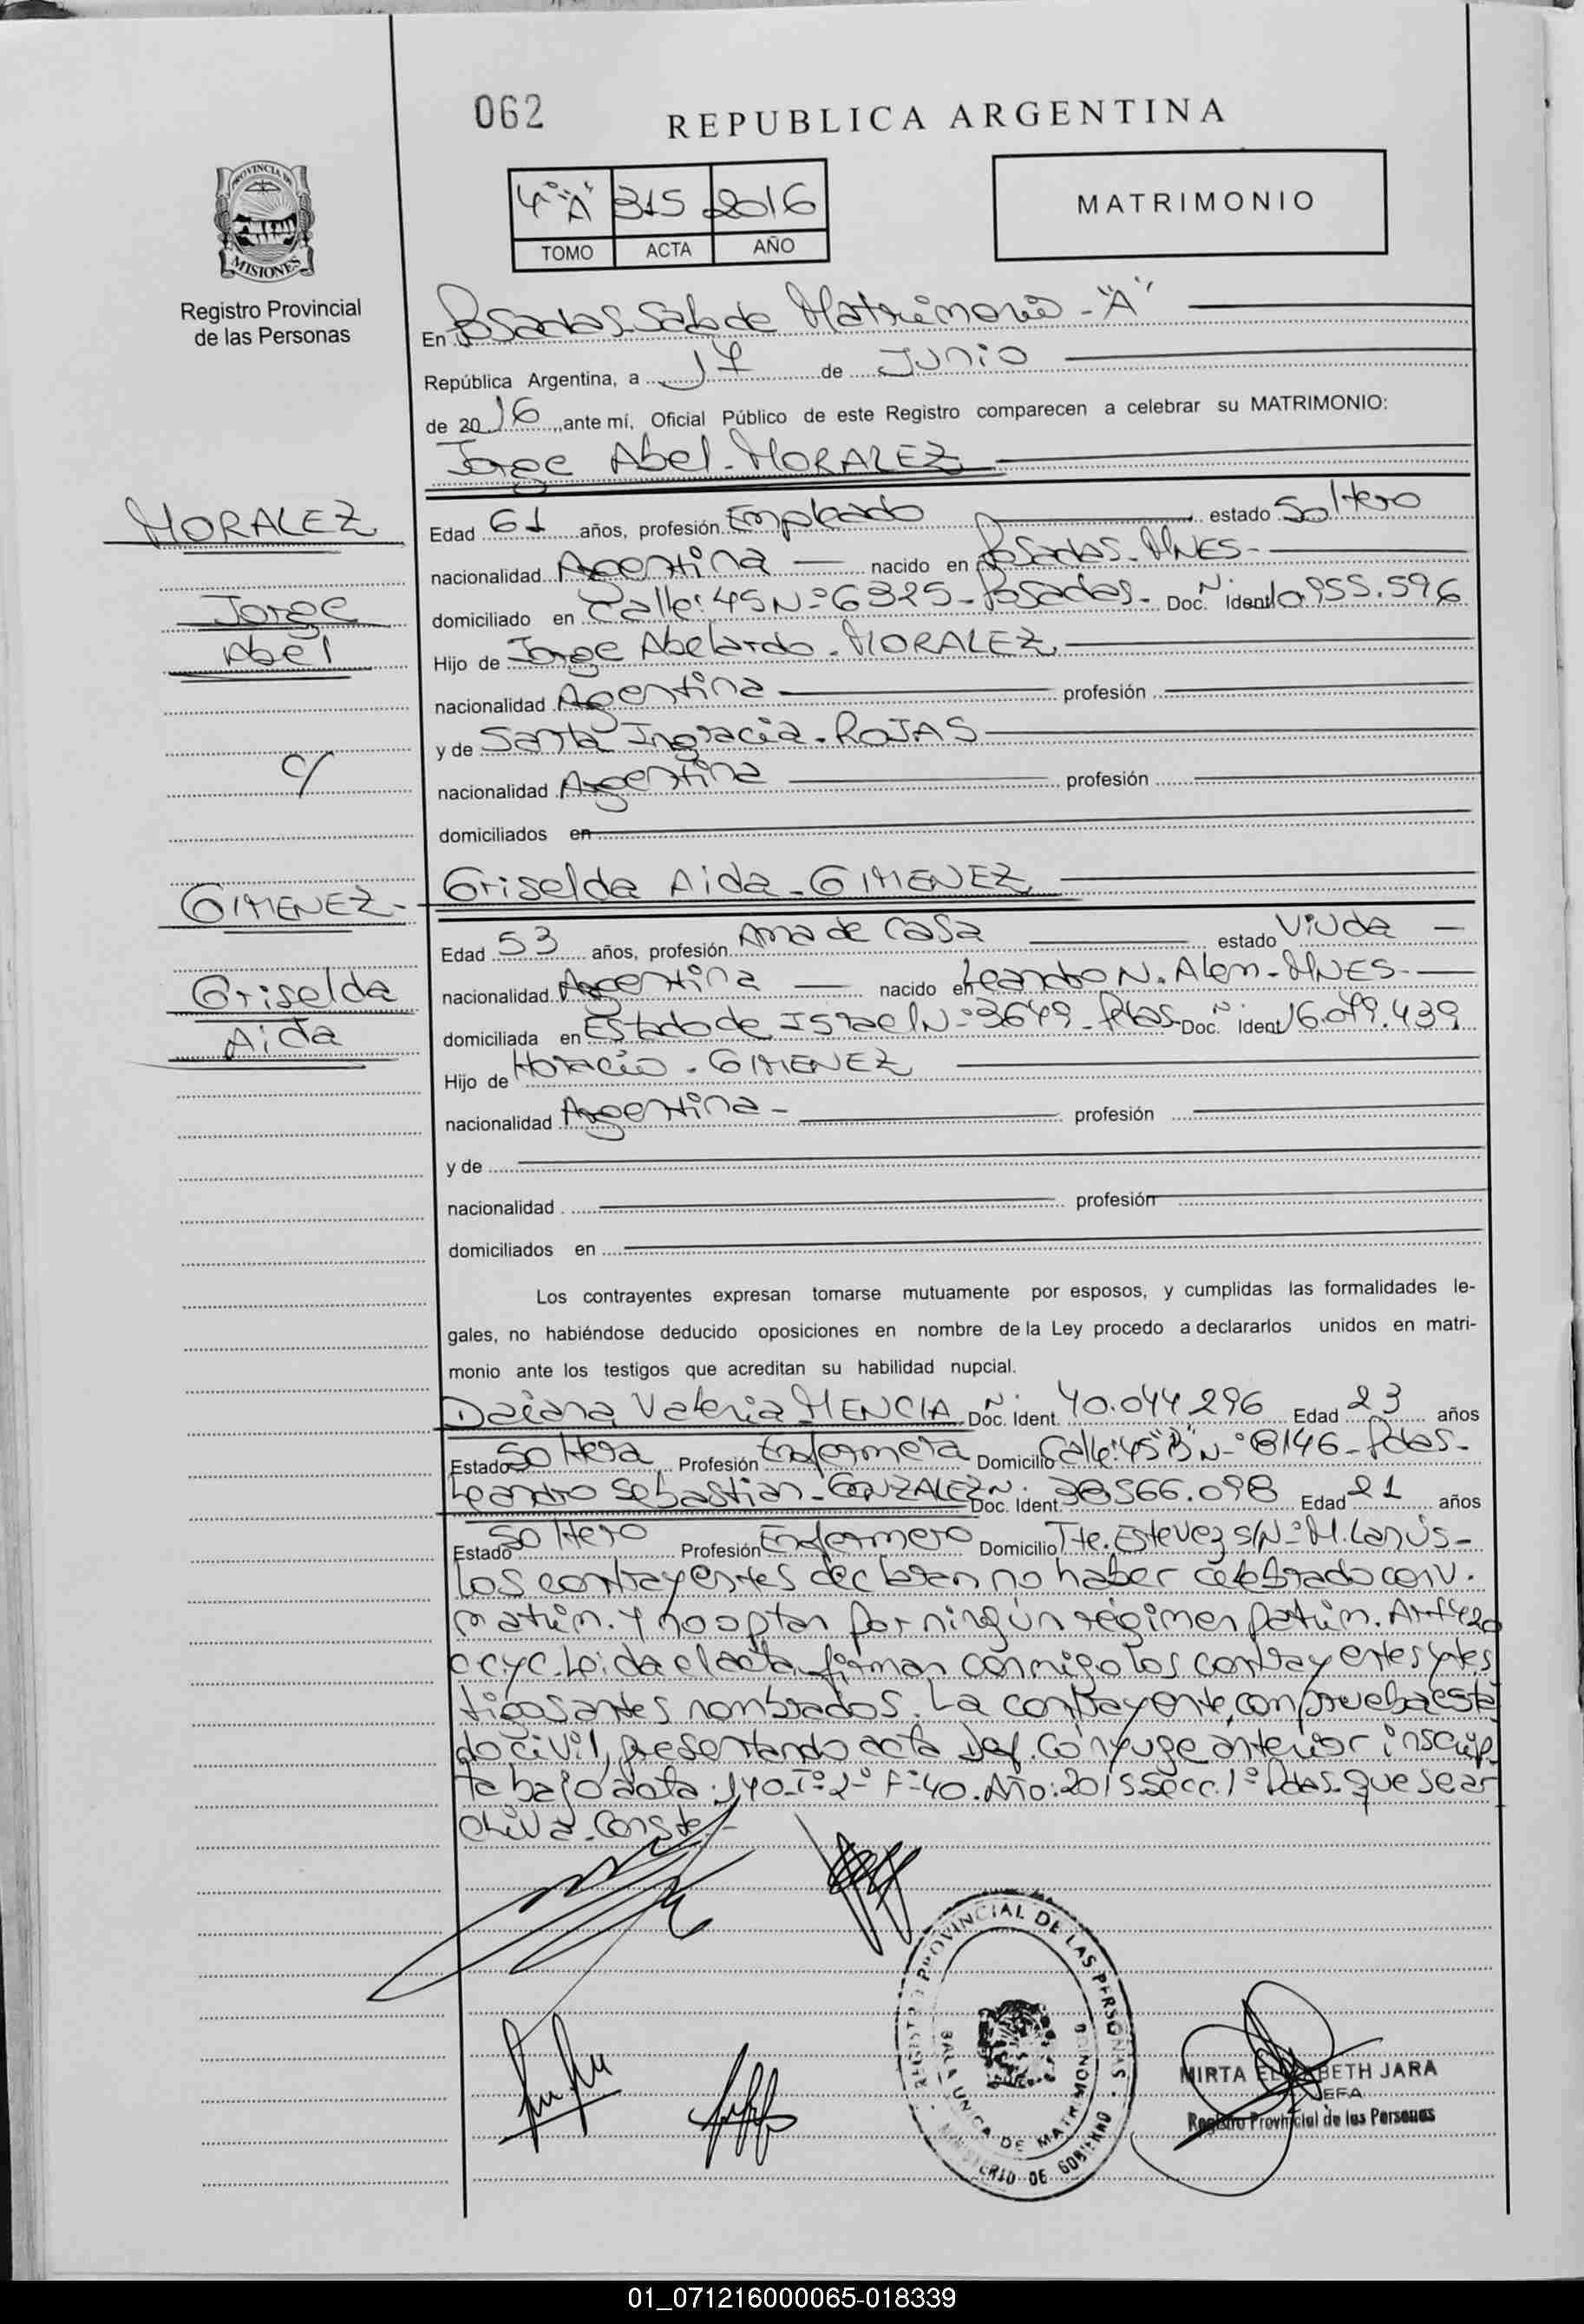 062
REPUBLICA ARGENTINA
PROVINCIA DE
MISIONES
Registro Provincial
de las Personas
4º "A" 315 2016
TOMO ACTA AÑO
MATRIMONIO
En Posadas Sala de Matrimonio - "A"
República Argentina, a 17 de Junio
de 2016, ante mí, Oficial Público de este Registro comparecen a celebrar su MATRIMONIO:
Jorge Abel - MORALEZ
MORALEZ
Jorge
Abel
c/
GIMENEZ -
Griselda
Aida
Edad 61 años, profesión Empleado estado Soltero
nacionalidad Argentina nacido en Posadas - MNES -
domiciliado en Calle: 45 Nº 6325 - Posadas - Doc. Ident. 10.955.596
Hijo de Jorge Abelardo - MORALEZ
nacionalidad Argentina profesión
y de Santa Ingracia - ROJAS
nacionalidad Argentina profesión
domiciliados en
Griselda Aida - GIMENEZ
Edad 53 años, profesión Ama de casa estado Viuda
nacionalidad Argentina nacido en Leandro N. Alem - MNES -
domiciliada en Estado de Israel Nº 3649 - Pdas - Doc. Ident. 16.079.439
Hijo de Horacio - GIMENEZ
nacionalidad Argentina - profesión
y de
nacionalidad profesión
domiciliados en
Los contrayentes expresan tomarse mutuamente por esposos, y cumplidas las formalidades le-
gales, no habiéndose deducido oposiciones en nombre de la Ley procedo a declararlos unidos en matri-
monio ante los testigos que acreditan su habilidad nupcial.
Daiana Valeria MENCIA Doc. Ident. 40.044.296 Edad 23 años
Estado Soltera Profesión Enfermera Domicilio Calle: 45 "B" Nº 8146 - Pdas -
Leandro Sebastian - GONZALEZ Doc. Ident. 38566.098 Edad 21 años
Estado Soltero Profesión Enfermero Domicilio Tte. Estevez s/Nº M. Lanús -
Los contrayentes declaran no haber celebrado conv.
matrim. y no optan por ningún régimen patrim. Art 420
CCYC. Leida el acta, firman conmigo los contrayentes y tes
tigos antes nombrados. La contrayente, comprueba esta
do civil, presentando acta Def. Cónyuge anterior inscrip
ta bajo acta: 140 - Tº 2º Fº 40. Año: 2015 Secc. 1º Pdas - que se ar
chiva. Conste. -
REGISTRO PROVINCIAL DE LAS PERSONAS
SALA UNICA DE MATRIMONIO
MINISTERIO DE GOBIERNO
MIRTA ELIZABETH JARA
JEFA
Registro Provincial de las Personas
01_071216000065-018339